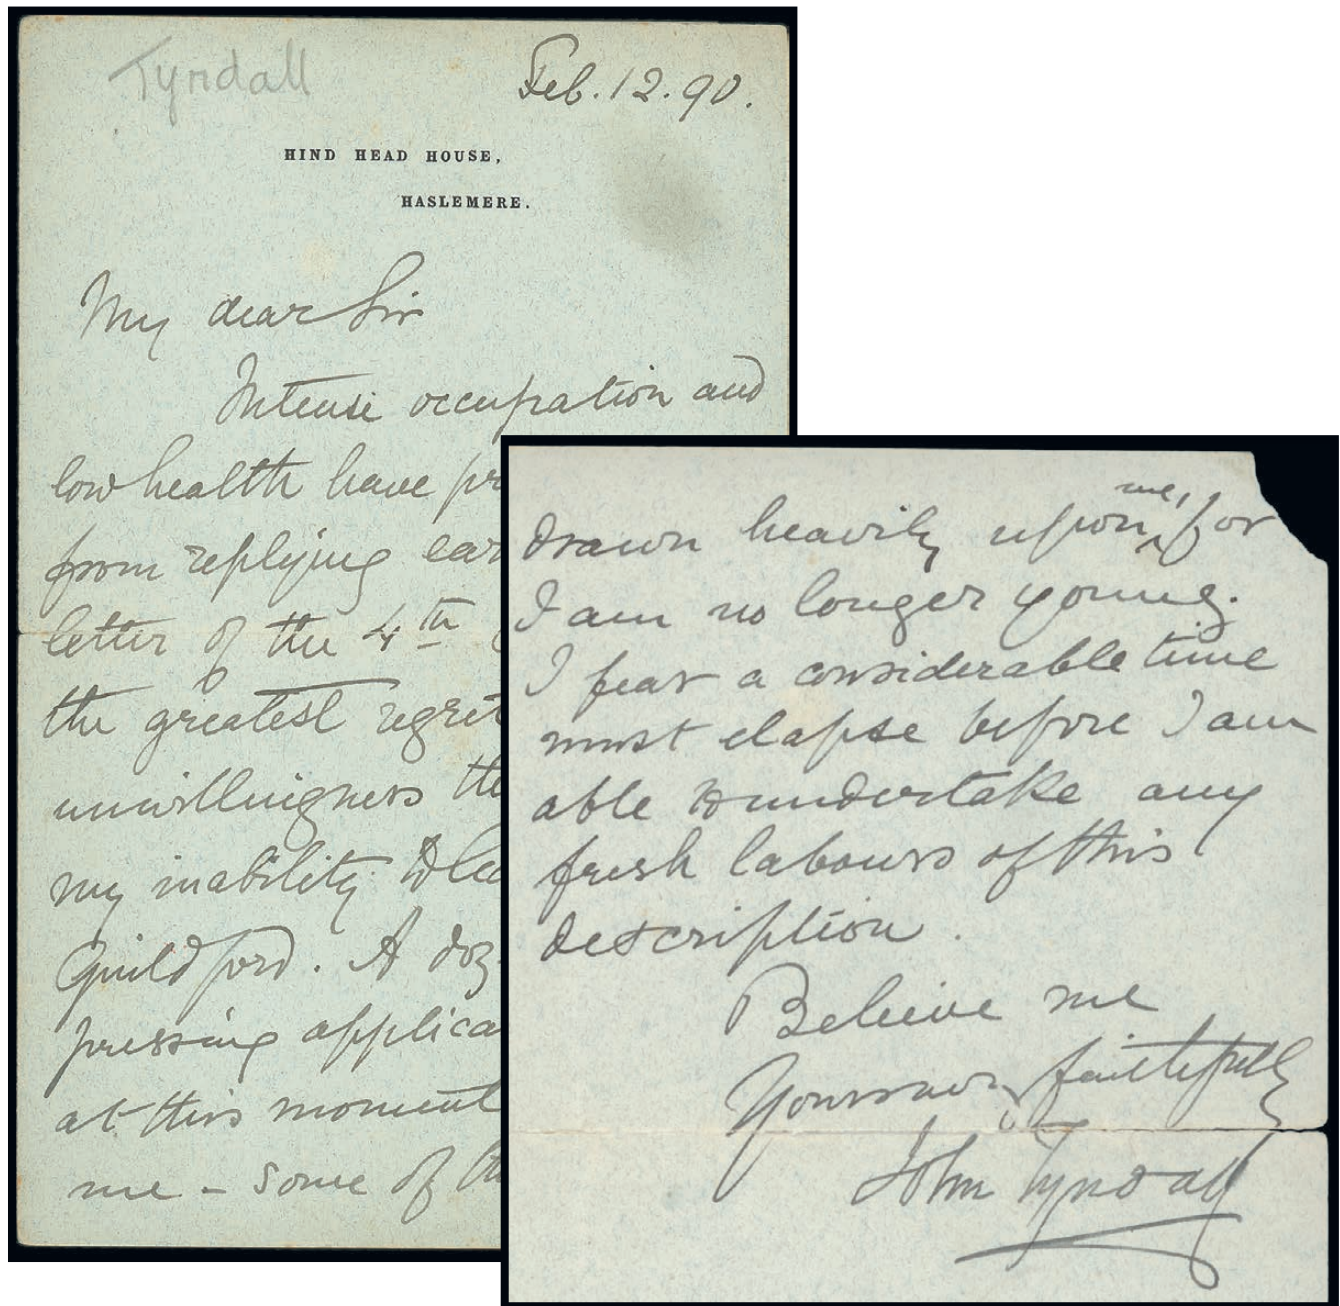 Tyndall
Feb. 12. 90.
HIND HEAD HOUSE,
HASLEMERE.
My dear Sir
Intense occupation and
low health have pr
from replying ear
letter of the 4th
the greatest regret
unwillingness the
my inability to lea
Guildford. A doz
pressing applica
at this moment
me - some of th
drawn heavily upon me, for
I am no longer young.
I fear a considerable time
must elapse before I am
able to undertake any
fresh labours of this
description.
Believe me
faithfully
John Tyndall